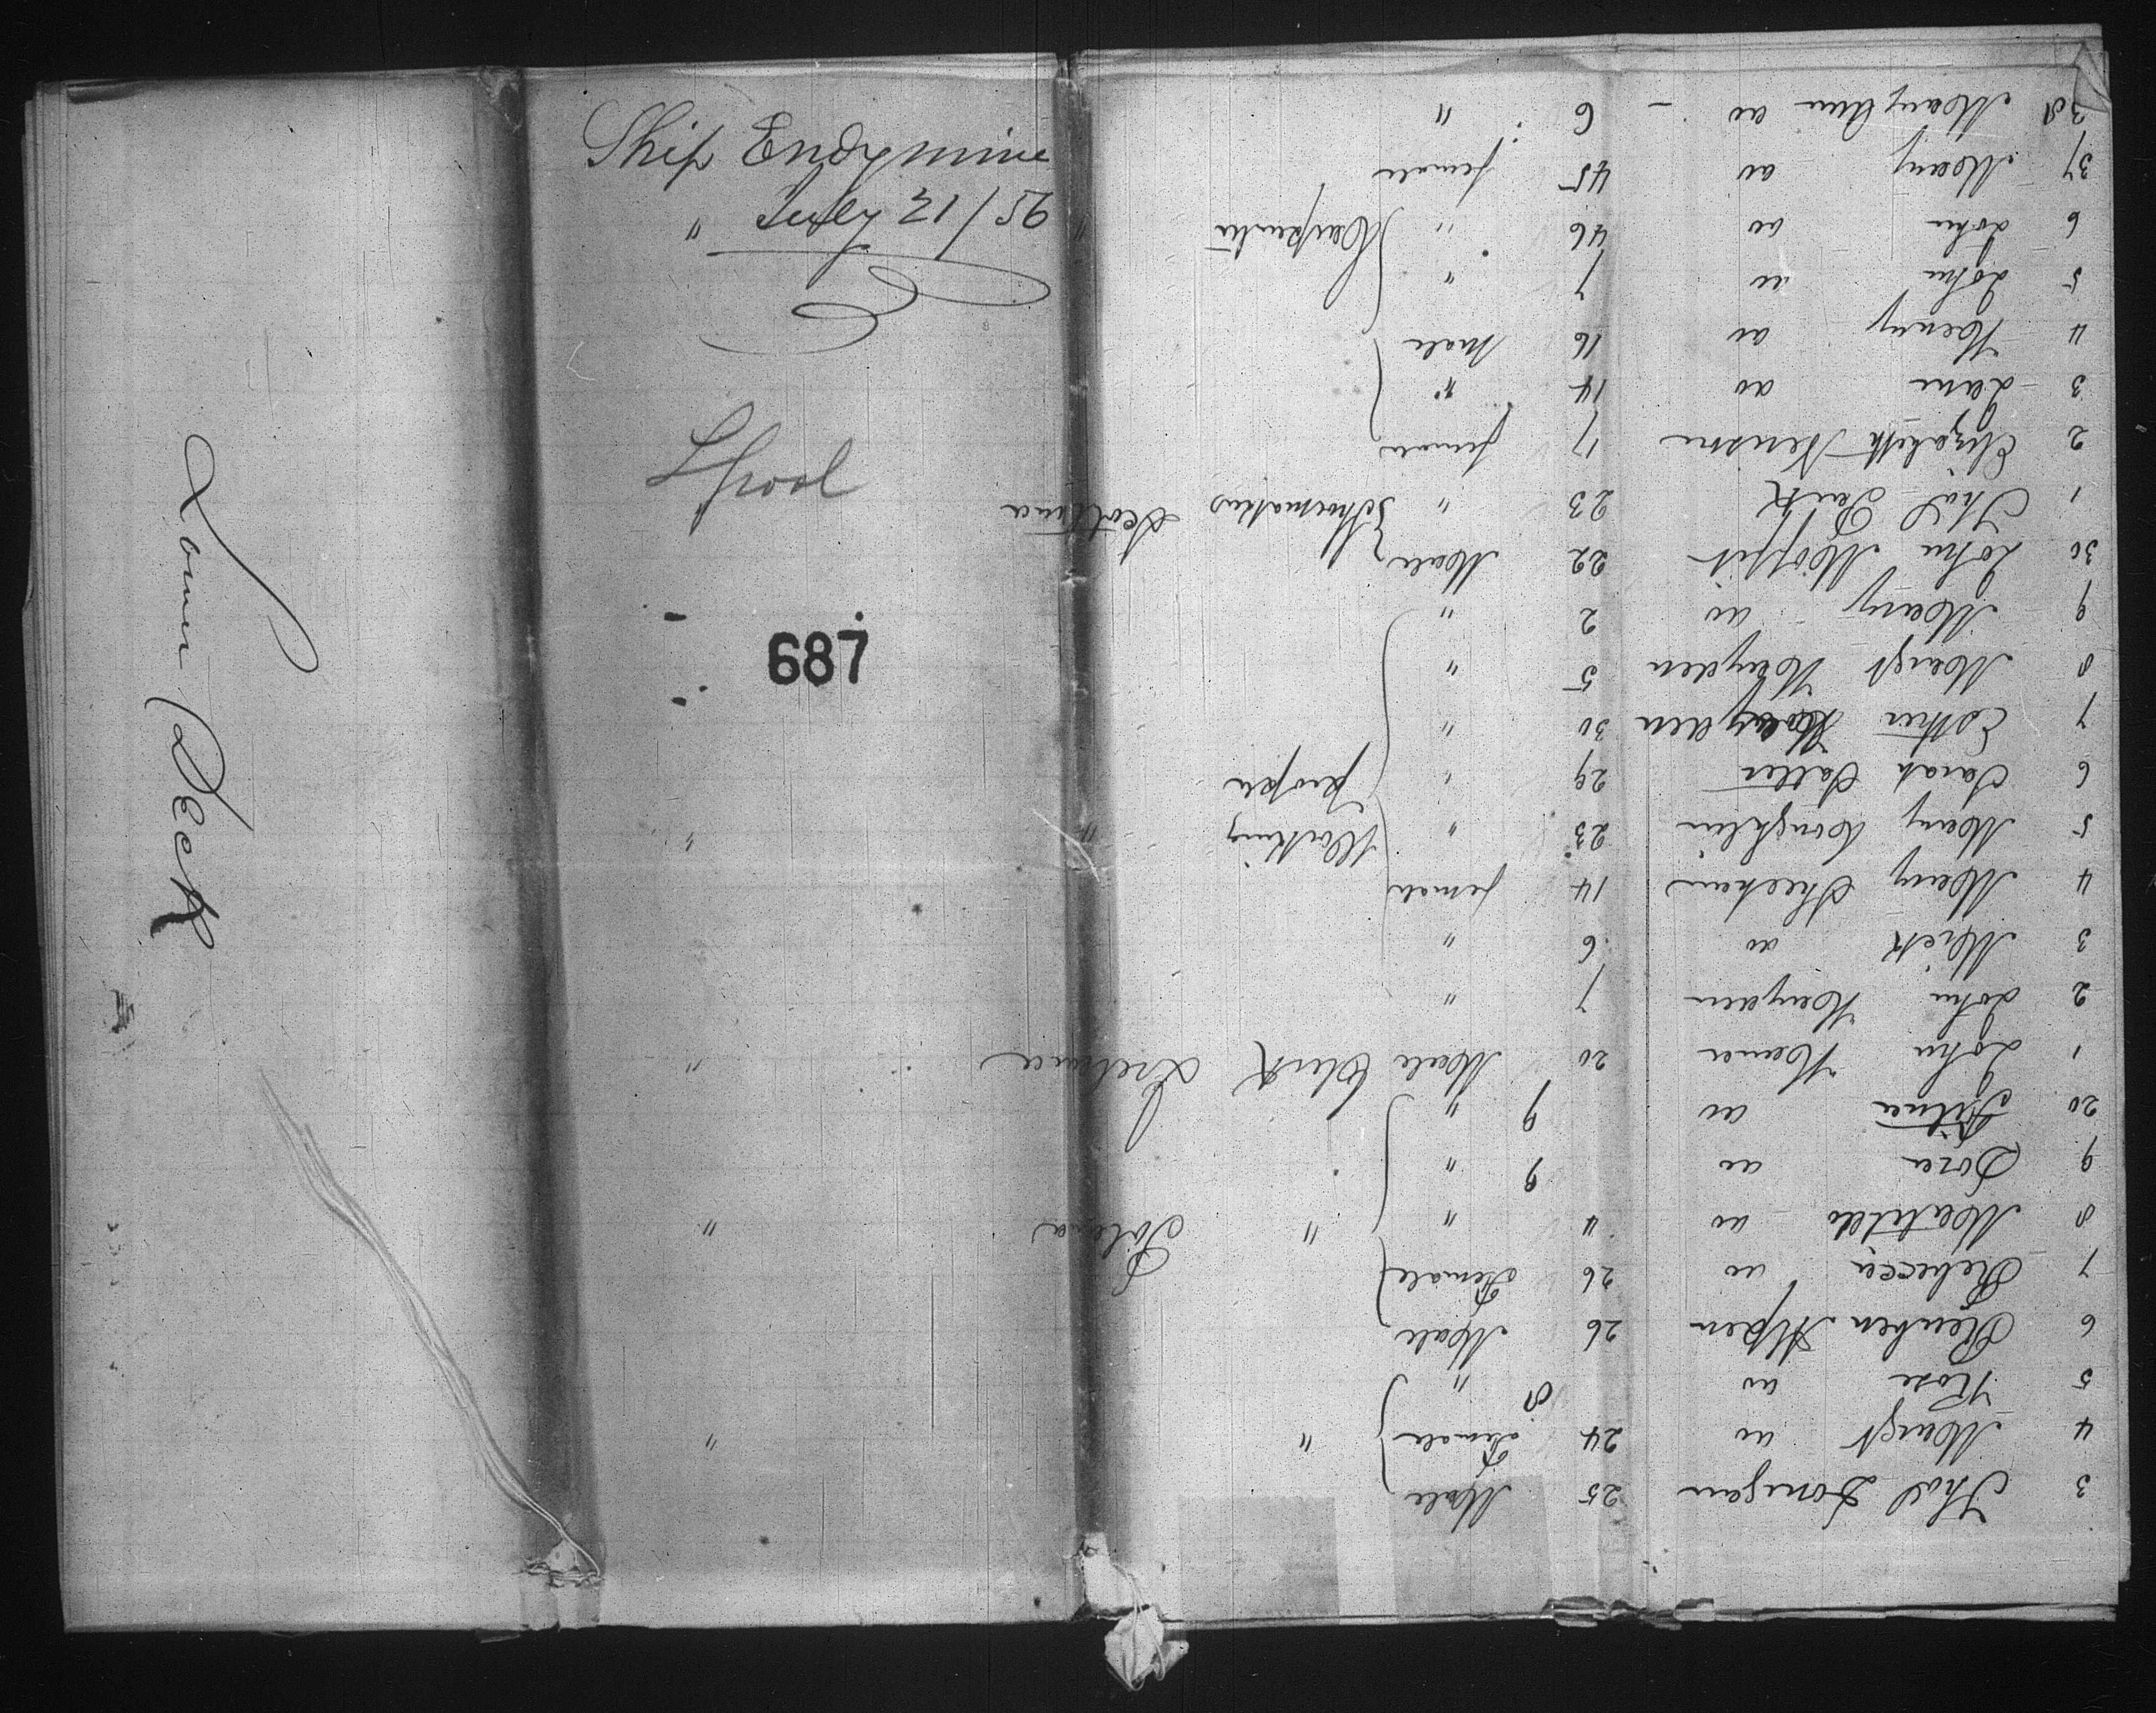 Ship Endymine
" July 21/56
Lpool
687
Lower Deck
3 Thos Donigan 25 Male
4 Margt do 24 Female " "
5 Rose do 8 "
6 Reuben 26 Male
7 Rebecca do 26 Female
8 Matilda do 4 " " Poland "
9 Dora do 9 "
20 do 9 "
1 John 20 Male Clerk Ireland "
2 John Hayden 7 "
3 Mick do 6 "
4 Mary Sheehan 14 female
5 Mary Coughlin 23 " Working " "
6 Sarah 29 " people
7 Esther Hayden 30 "
8 Margt Hayden 5 "
9 Mary do 2 "
30 John Moffit 22 Male
1 Thos 23 " Shoemakers Scotland
2 Elizabeth 17 female
3 Jane do 14 "
4 Henry do 16 Male
5 John do 7 "
6 John do 46 " Carpenter "
37 Mary do 45 female
38 Mary Ann do - 6 "